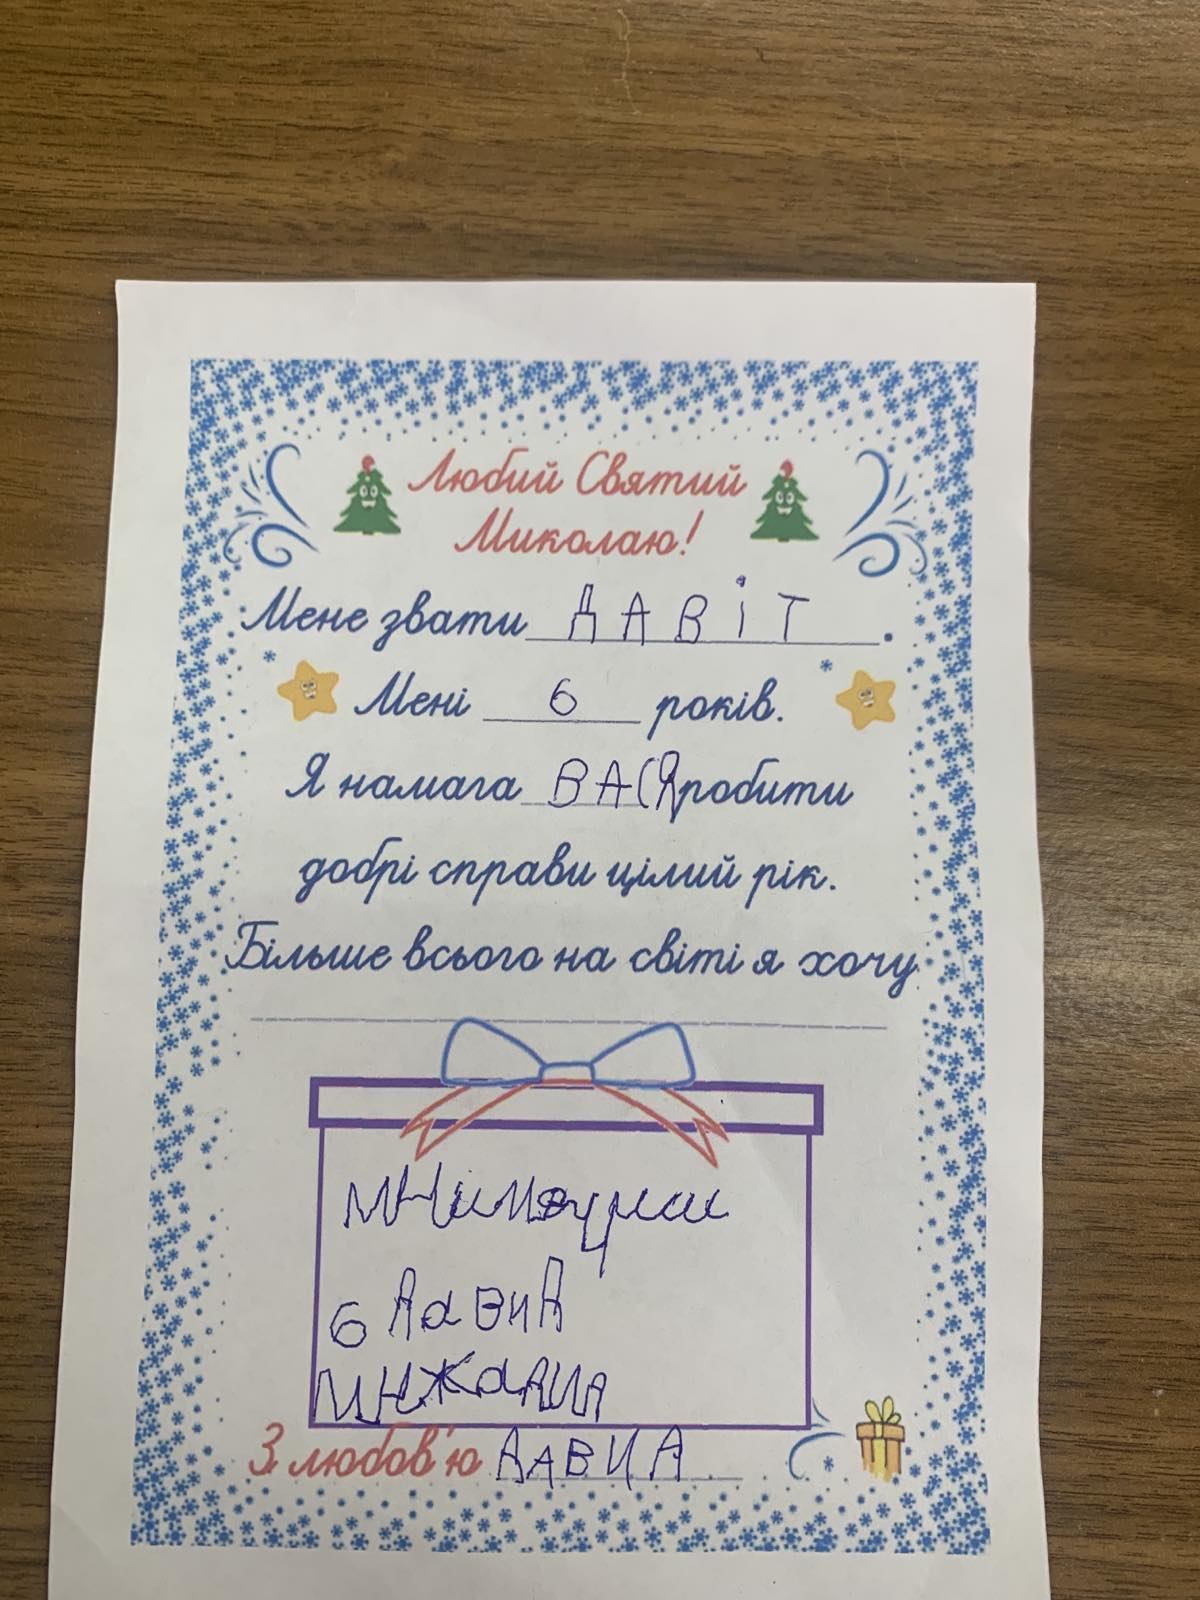 Любий Святий
Миколаю!
Мене звати ДАВІТ.
Мені 6 років.
Я намага ВАСЯ робити
добрі справи цілий рік.
Більше всього на світі я хочу
6
З любов'ю ДАВИД